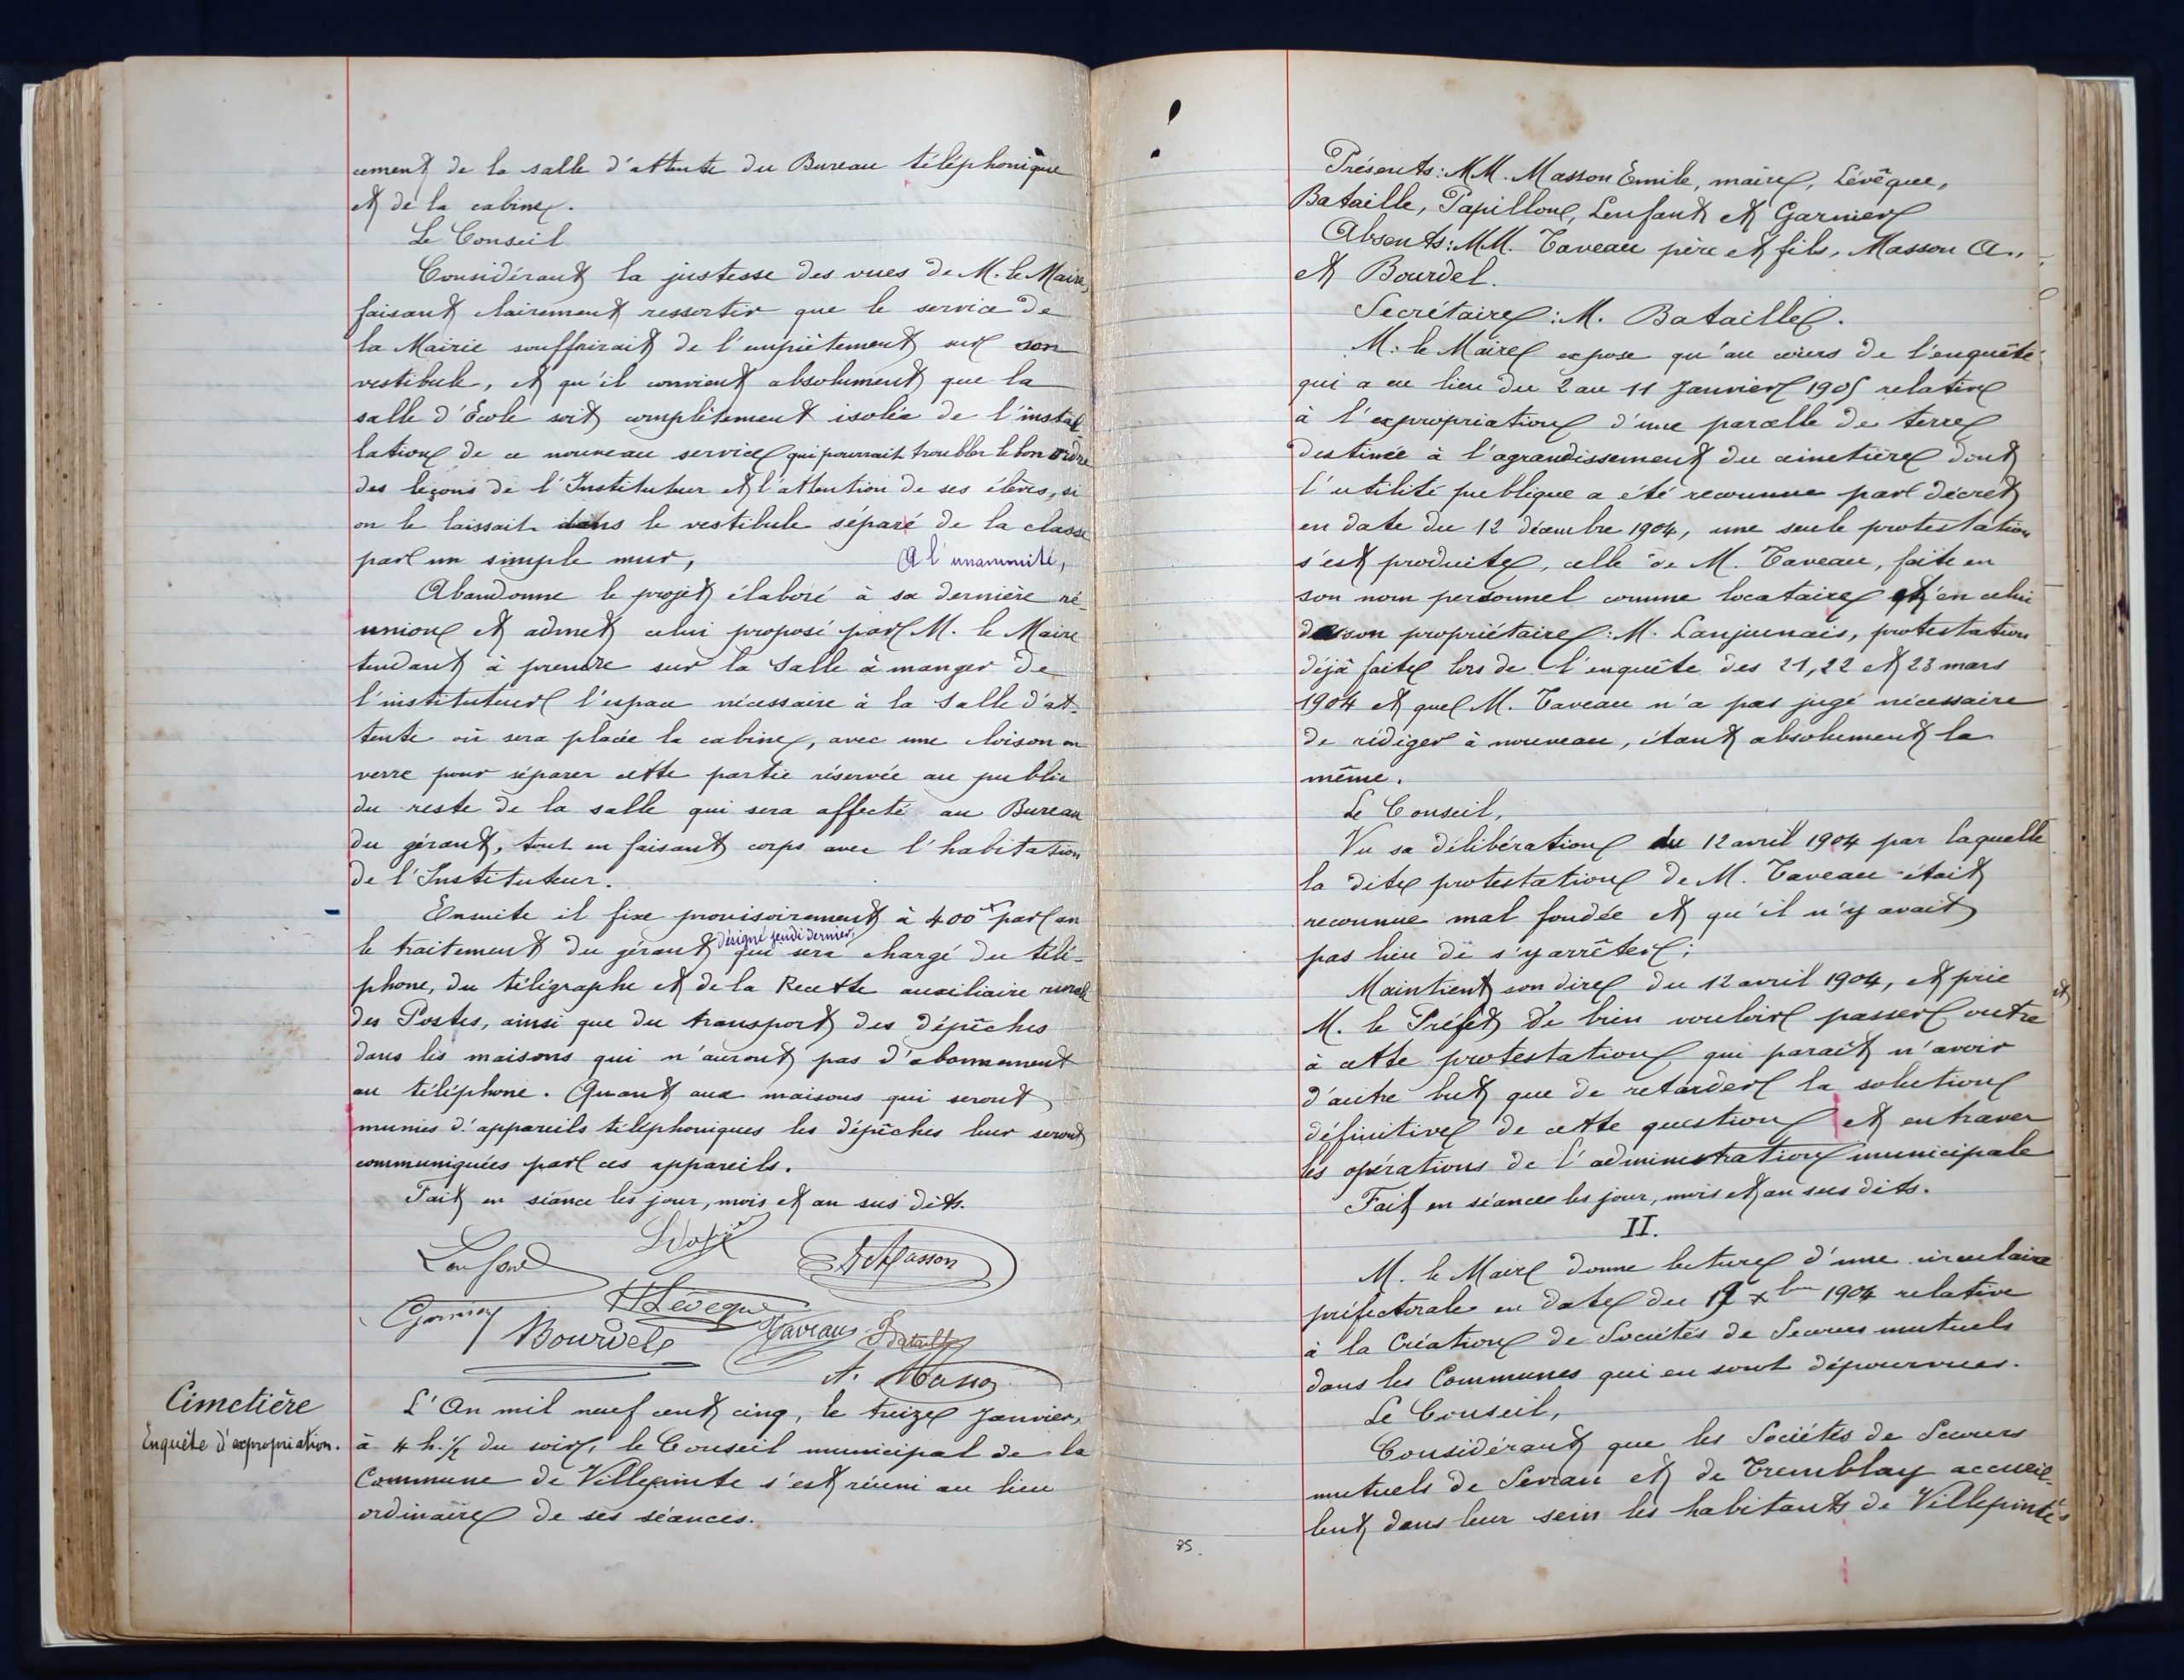 cement de la salle d'attente du Bureau téléphonique
et de la cabine.
Le Conseil
Considérant la justesse des vues de M. le Maire,
faisant clairement ressortir que le service de
la Mairie souffrirait de l'empiètement sur son
vestibule, et qu'il convient absolument que la
salle d'École soit complètement isolée de l'instal-
lation de ce nouveau service qui pourrait troubler le bon ordre
des leçons de l'Instituteur et l'attention de ses élèves, si
on le laissait dans le vestibule séparé de la classe
par un simple mur, A l'unanimité,
Abandonne le projet élaboré à sa dernière ré-
union et admet celui proposé par M. le Maire
tendant à prendre sur la Salle à manger de
l'instituteur l'espace nécessaire à la Salle d'at-
tente où sera placée la cabine, avec une cloison en
verre pour séparer cette partie réservée au public
du reste de la salle qui sera affecté au Bureau
du gérant, tout en faisant corps avec l'habitation
de l'Instituteur.
Ensuite il fixe provisoirement à 400 par an
désigné jeudi dernier,
le traitement du gérant qui sera chargé du télé-
phone, du télégraphe et de la Recette auxiliaire rurale
des Postes, ainsi que du transport des dépêches
dans les maisons qui n'auront pas d'abonnement
au téléphone. Quant aux maisons qui seront
munies d'appareils téléphoniques les dépêches leur seront
communiquées par ces appareils.
Fait en séance les jour, mois et an sus dits.
Lenfant Masson
Garnier H Lévêque
Bourdel Taveau Bataille
A. Masson
Cimetière
Enquête d'expropriation.
L'An mil neuf cent cinq, le treize Janvier,
à 4 h. ½ du soir, le Conseil municipal de la
Commune de Villepinte s'est réuni au lieu
ordinaire de ses séances.
Présents: MM. Masson Emile, maire, Lévêque,
Bataille, Papillon, Lenfant et Garnier
Absents: MM. Taveau père et fils, Masson A.,
et Bourdel.
Secrétaire: M. Bataille.
M. le Maire expose qu'au cours de l'enquête
qui a eu lieu du 2 au 11 Janvier 1905 relative
à l'expropriation d'une parcelle de terre
destinée à l'agrandissement du cimetière dont
l'utilité publique a été reconnue par décret
en date du 12 décembre 1904, une seule protestation
s'est produite, celle de M. Taveau, faite en
son nom personnel comme locataire et en celui
de son propriétaire: M. Lanjuinais, protestation
déjà faite lors de l'enquête des 21, 22 et 23 mars
1904 et que M. Taveau n'a pas jugé nécessaire
de rédiger à nouveau, étant absolument la
même.
Le Conseil,
Vu sa délibération du 12 avril 1904 par laquelle
la dite protestation de M. Taveau était
reconnue mal fondée et qu'il n'y avait
pas lieu de s'y arrêter;
Maintient son dire du 12 avril 1904, et prie
M. le Préfet de bien vouloir passer outre
à cette protestation qui paraît n'avoir
d'autre but que de retarder la solution
définitive de cette question et entraver
les opérations de l'administration municipale
Fait en séance les jour, mois et an sus dits.
II.
M. le Maire donne lecture d'une circulaire
préfectorale en date du xbre 1904 relative
à la Création de Sociétés de Secours mutuels
dans les Communes qui en sont dépourvues.
Le Conseil,
Considérant que les Sociétés de Secours
mutuels de Sevran et de Tremblay accueil-
lent dans leur sein les habitants de Villepinte
85.